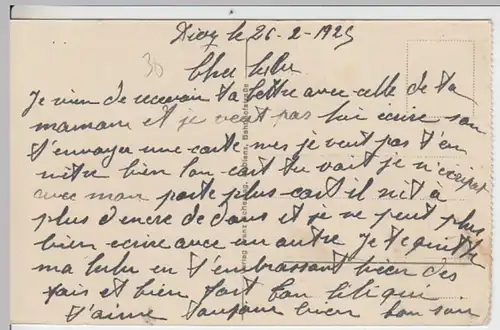 le 26-2-1925
30
Cher lulu
Je vien de recevoir ta lettre avec celle de ta
maman et je veut pas lui écrire son
t'envoyer une carte mes je veut pas t'en
mètre bien lon cart tu voit je
avec mon porte plus cart il nit a
plus d'encre de dans et je ne peut plus
bien ecrire avec un autre Je te quitte
ma lulu en t'embrassant bien des
fois et bien fort ton
t'aime toujour bien bon soir